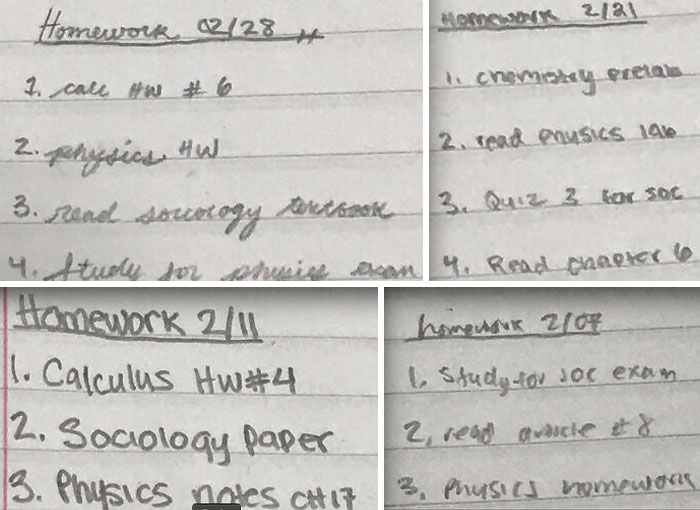 Homework 02/28
1. calc HW # 6
2. physics HW
3. read sociology textbook
4. study for physics exam
Homework 2/21
1. chemistry prelab
2. read physics lab
3. Quiz 3 for soc
4. Read chapter 6
Homework 2/11
1. Calculus HW#4
2. Sociology paper
3. Physics notes CH17
homework 2/07
1. Study for soc exam
2. read article # 8
3. Physics homework